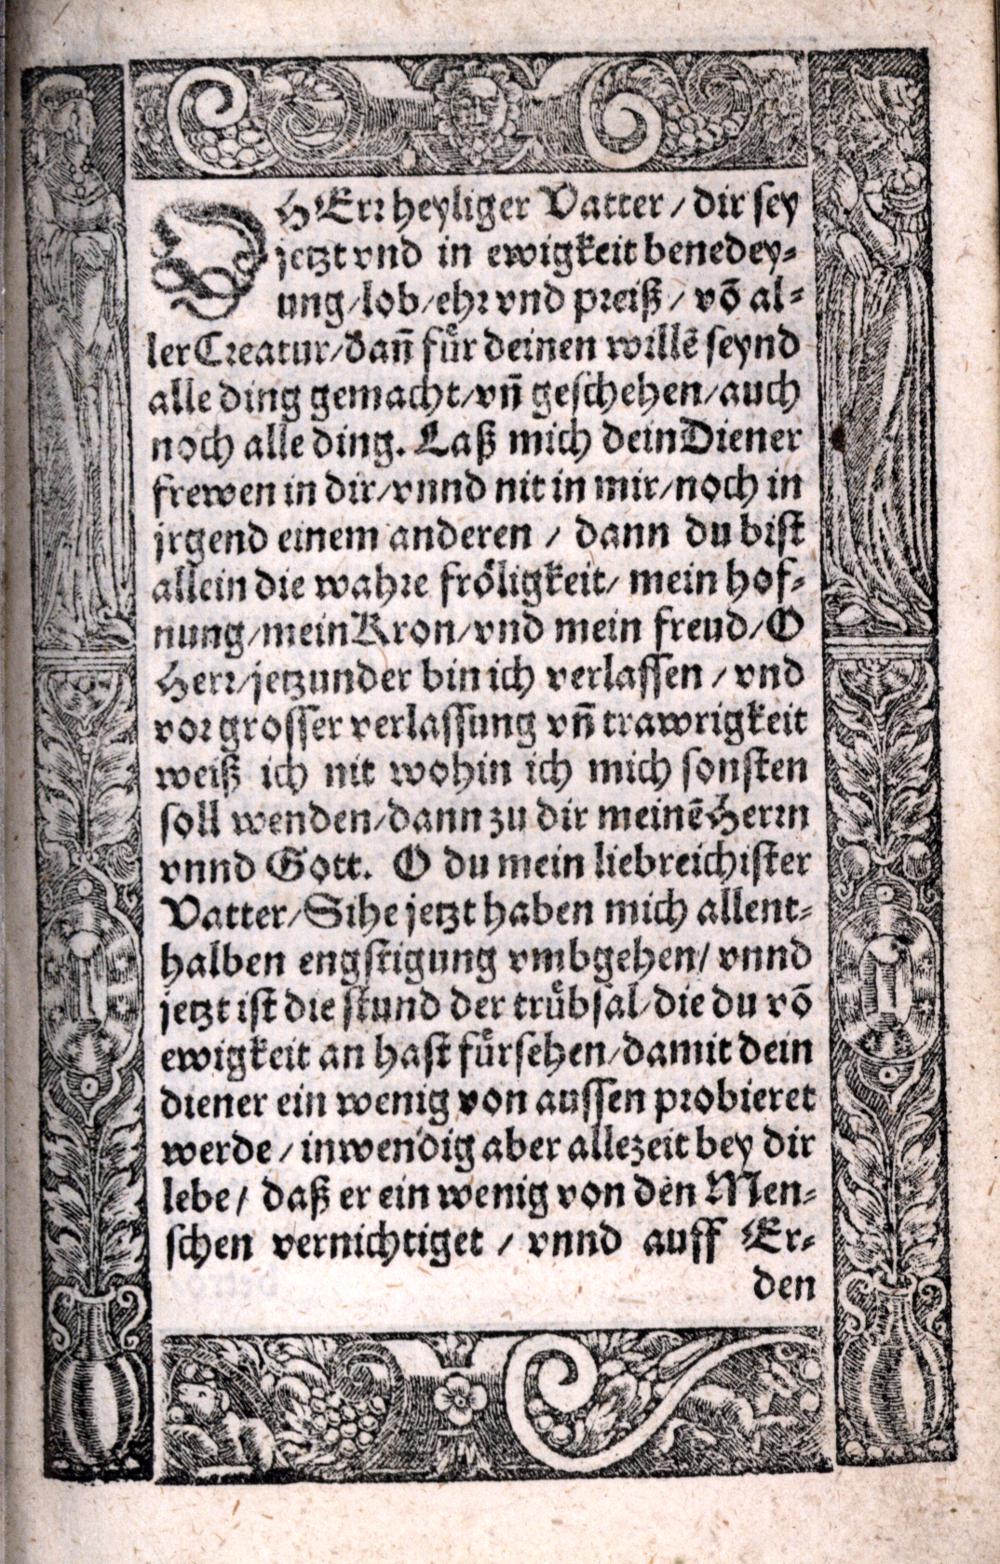 O HErr heyliger Vatter / dir sey
jetzt vnd in ewigkeit benedey⸗
ung / lob / ehr vnd preiß / võ al⸗
ler Creatur / dañ fuͤr deinen willẽ seynd
alle ding gemacht / vñ geschehen / auch
noch alle ding. Laß mich dein Diener
frewen in dir / vnnd nit in mir / noch in
jrgend einem anderen / dann du bist
allein die wahre froͤligkeit / mein hof⸗
nung / mein Kron / vnd mein freud / O
Herr / jetzunder bin ich verlassen / vnd
vor grosser verlassung vñ trawrigkeit
weiß ich nit wohin ich mich sonsten
soll wenden / dann zu dir meinẽ Herrn
vnnd Gott. O du mein liebreichister
Vatter / Sihe jetzt haben mich allent⸗
halben engstigung vmbgehen / vnnd
jetzt ist die stund der truͤbsal / die du võ
ewigkeit an hast fuͤrsehen / damit dein
diener ein wenig von aussen probieret
werde / inwendig aber allezeit bey dir
lebe / daß er ein wenig von den Men⸗
schen vernichtiget / vnnd auff Er⸗
den